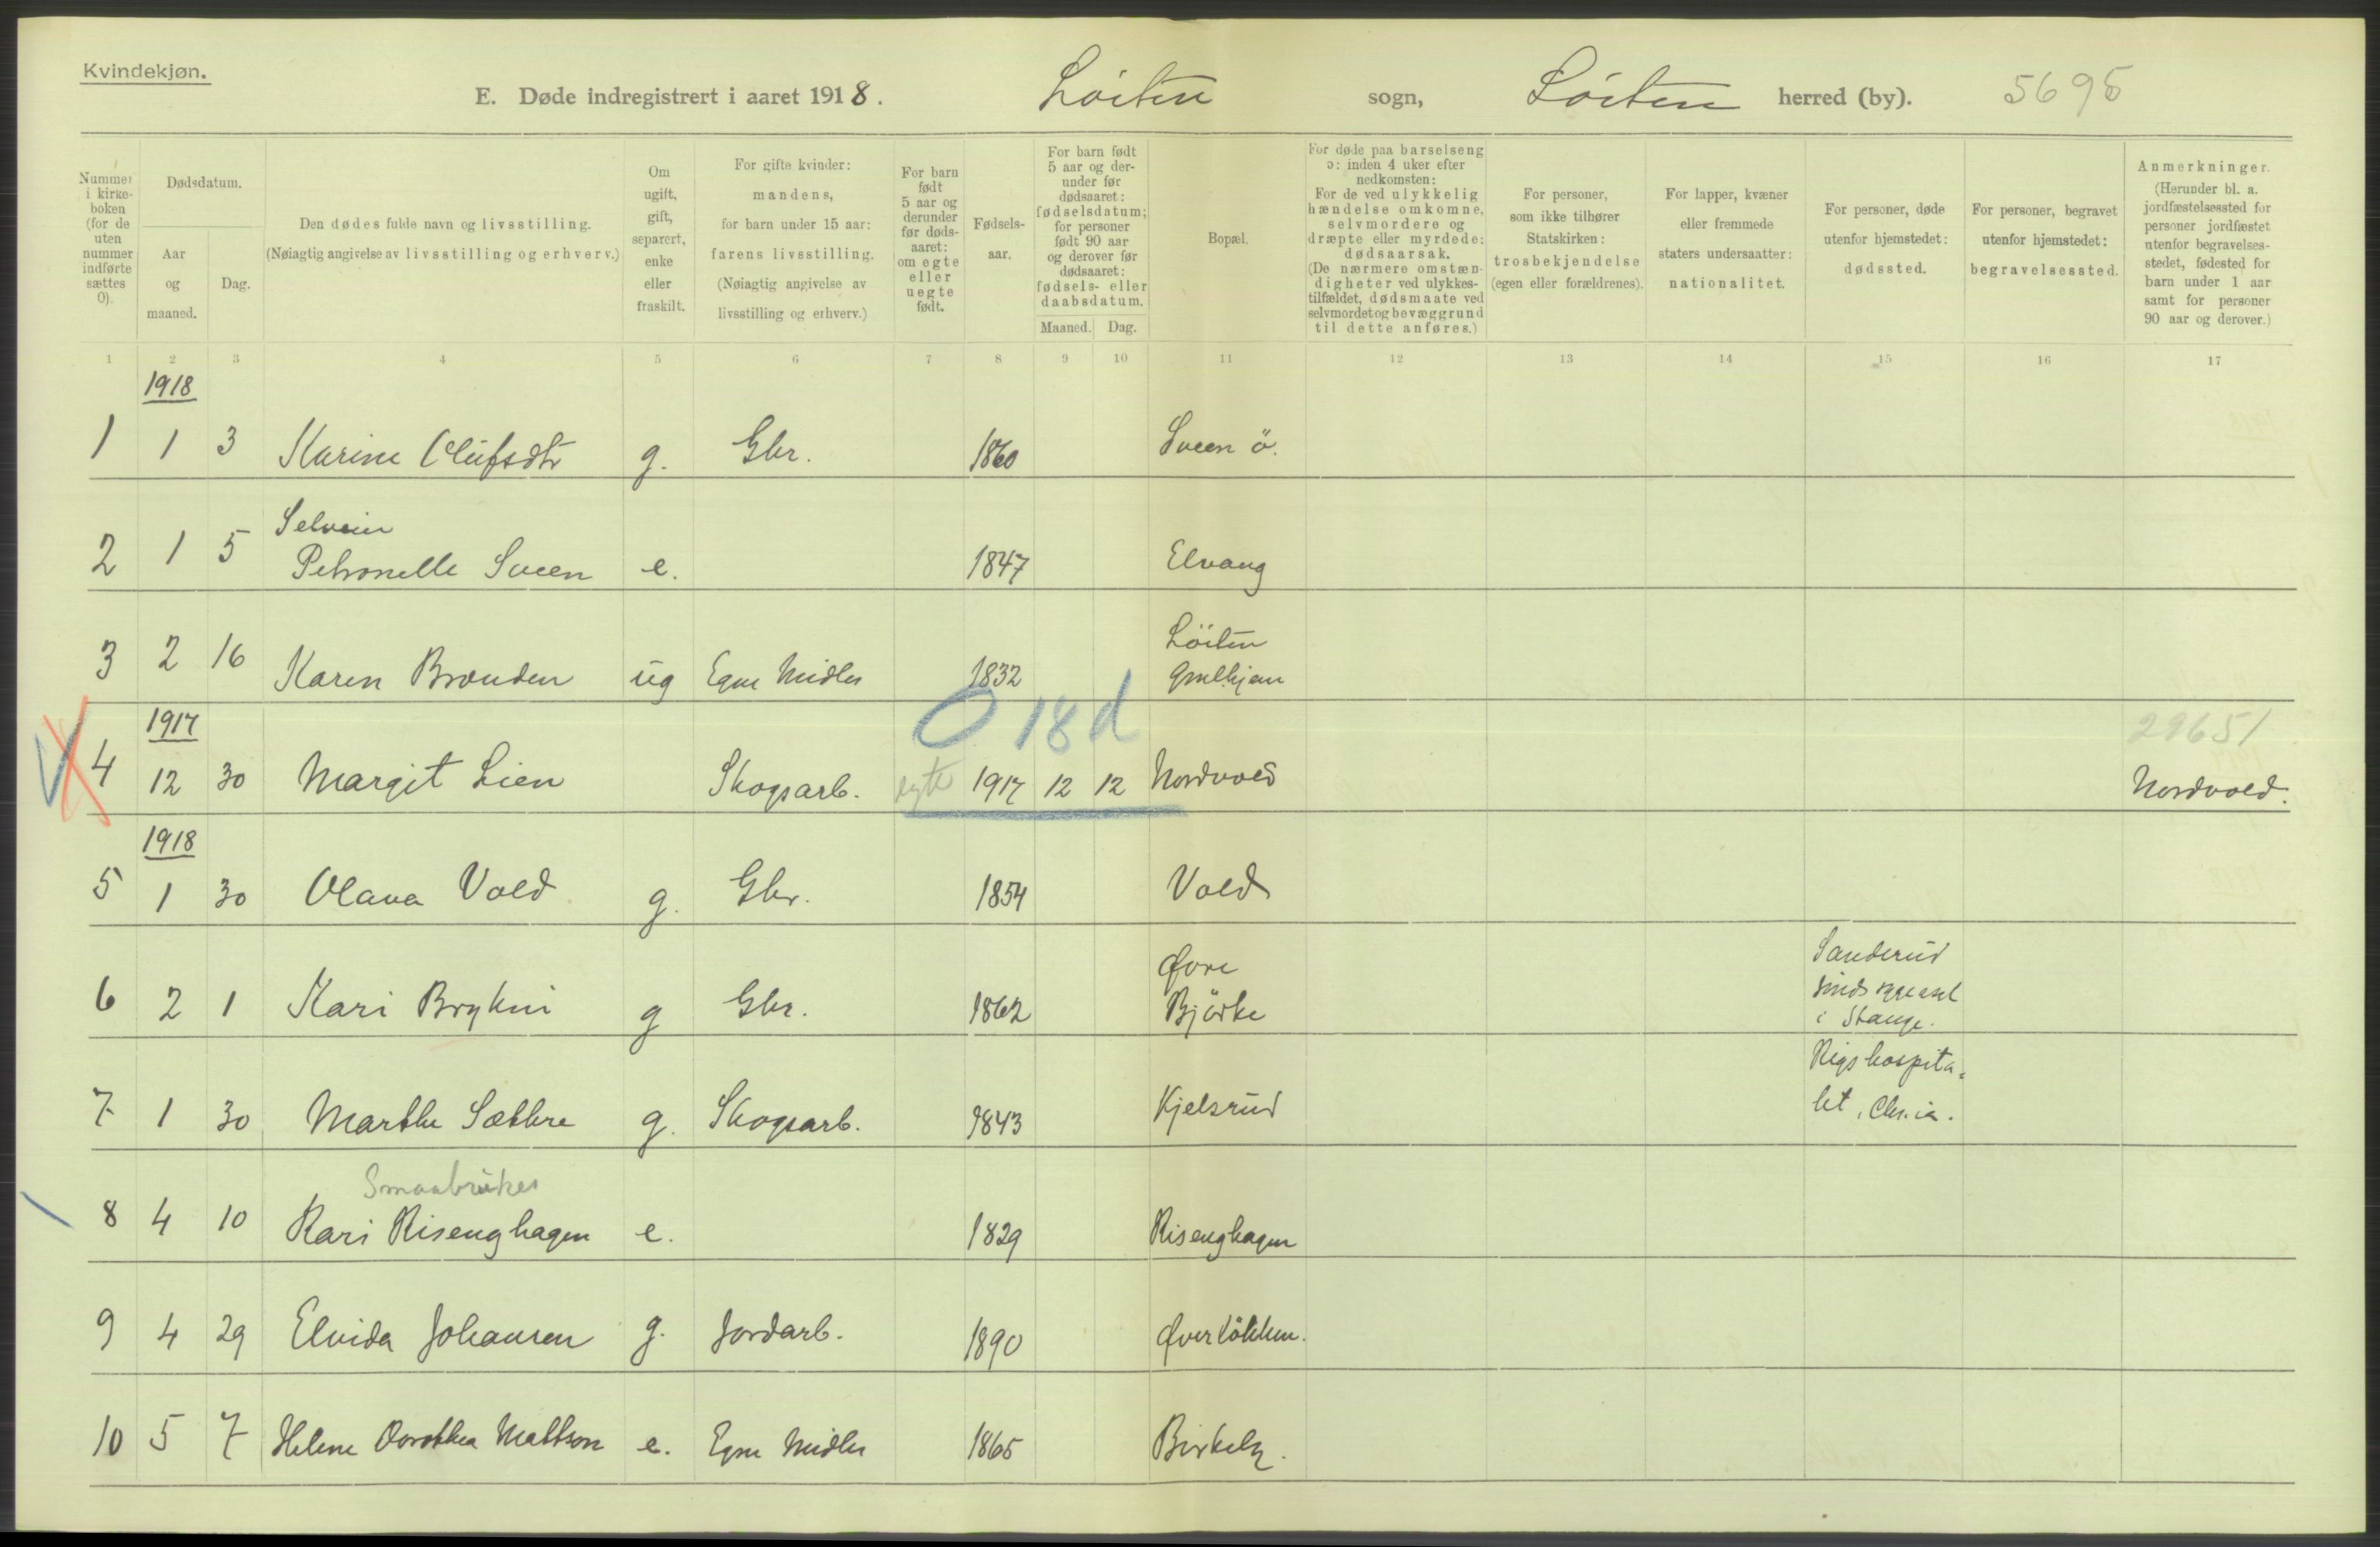 Kvindekjøn.
E. Døde indregistrert i aaret 1918. Löiten sogn, Löiten herred (by). 5695
Nummer i kirke-boken (for de uten nummer indførte sættes 0).
Dødsdatum.
Aar og maaned.
Dag.
Den dødes fulde navn og livsstilling.
(Nøiagtig angivelse av livsstilling og erhverv.)
Om ugift, gift, separert, enke eller fraskilt.
For gifte kvinder: mandens, for barn under 15 aar: farens livsstilling. (Nøiagtig angivelse av livsstilling og erhverv.)
For barn født 5 aar og derunder før døds-aaret: om egte eller uegte født.
Fødsels-aar.
For barn født 5 aar og der-under før dødsaaret: fødselsdatum; for personer født 90 aar og derover før dødsaaret: fødsels- eller daabsdatum.
Maaned. Dag.
Bopæl.
For døde paa barselseng ɔ: inden 4 uker efter nedkomsten: For de ved ulykkelig hændelse omkomne, selvmordere og dræpte eller myrdede: dødsaarsak. (De nærmere omstæn-digheter ved ulykkes-tilfældet, dødsmaate ved selvmordet og bevæggrund til dette anføres.)
For personer, som ikke tilhører Statskirken: trosbekjendelse (egen eller forældrenes).
For lapper, kvæner eller fremmede staters undersaatter: nationalitet.
For personer, døde utenfor hjemstedet: dødssted.
For personer, begravet utenfor hjemstedet: begravelsessted.
Anmerkninger. (Herunder bl. a. jordfæstelsessted for personer jordfæstet utenfor begravelses-stedet, fødested for barn under 1 aar samt for personer 90 aar og derover.)
1 2 3 4 5 6 7 8 9 10 11 12 13 14 15 16 17
1918
1 1 3 Karine Olufsdtr g. Gbr. 1860 Sveen ö.
Selveier
2 1 5 Petronelle Sveen e. 1847 Elvang
Löiten
3 2 16 Karen Brænden ug Egne Midler 1832
0 18 d
1917 29651
4 12 30 Margit Lien Skogsarb. egte 1917 12 12 Nordvold Nordvold.
1918
5 1 30 Olava Vold g. Gbr. 1854 Vold
6 2 1 Kari Brykni g Gbr. 1862 Øvre Björke Sanderud sindssygeasyl i Stange.
7 1 30 Marthe Sæthre g. Skogsarb. 1843 Kjelsrud Rigshospita-let, Chr.ia.
Smaabruker
8 4 10 Kari Risenghagen e. 1829 Risenghagen
9 4 29 Elvida Johansen g. Jordarb. 1890 Øverlökken.
10 5 7 Helene Dorothea Mattson e. Egne Midler 1865 Birkely.